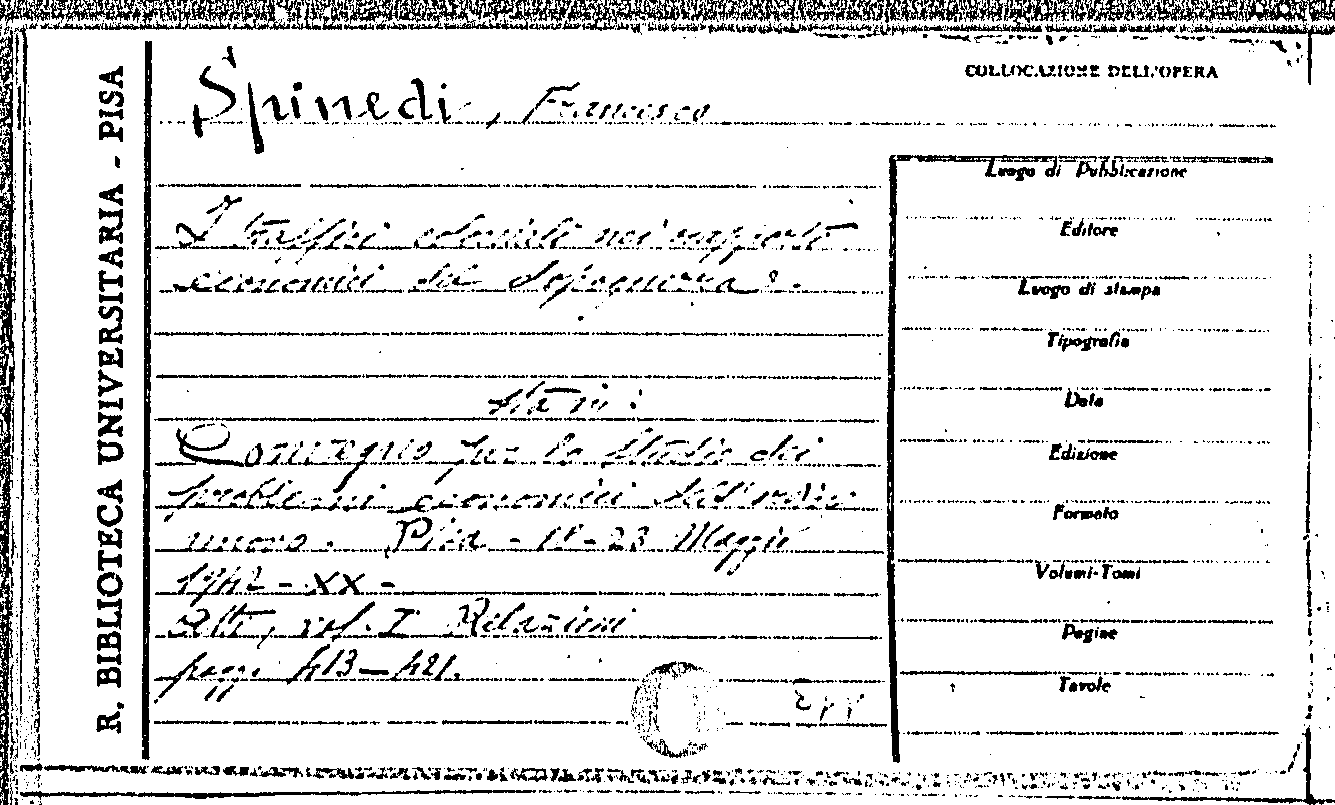 R. BIBLIOTECA UNIVERSITARIA - PISA
COLLOCAZIONE DELL'OPERA
Spinedi, Francesco
I traffici coloniali nei rapporti
economici del dopoguerra.
Sta in:
Convegno per lo Studio dei
problemi economici dell'ordine
nuovo. Pisa - 18-23 Maggio
1942 - XX -
Atti, vol. I Relazioni
pagg. 413-421.
Luogo di Pubblicazione
Editore
Luogo di stampa
Tipografia
Data
Edizione
Formato
Volumi-Tomi
Pagine
Tavole